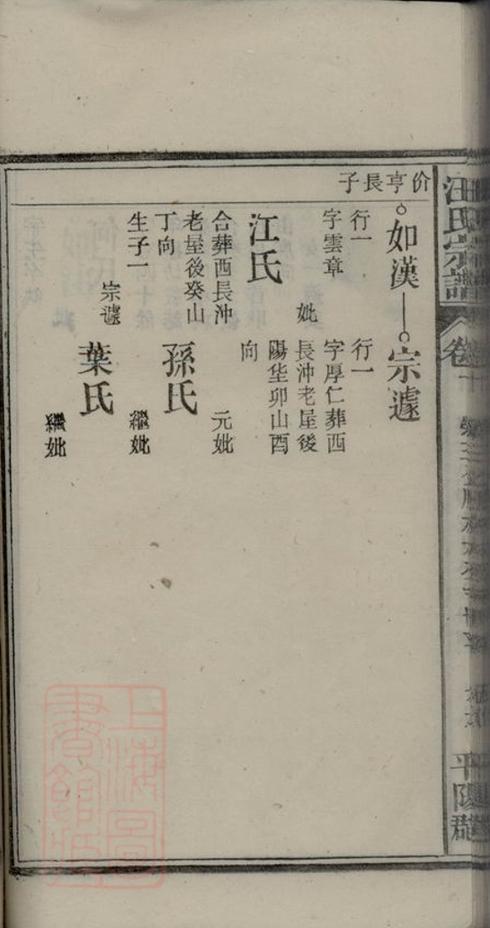 汪氏宗譜
平陽郡
价亨長子
如漢
行一
字雲章
妣
江氏
合葬西長沖
老屋後癸山
丁向
生子一
宗遽
宗遽
行一
字厚仁葬西
長沖老屋後
陽华卯山酉
向
元妣
孫氏
繼妣
葉氏
繼妣
上海圖書館藏